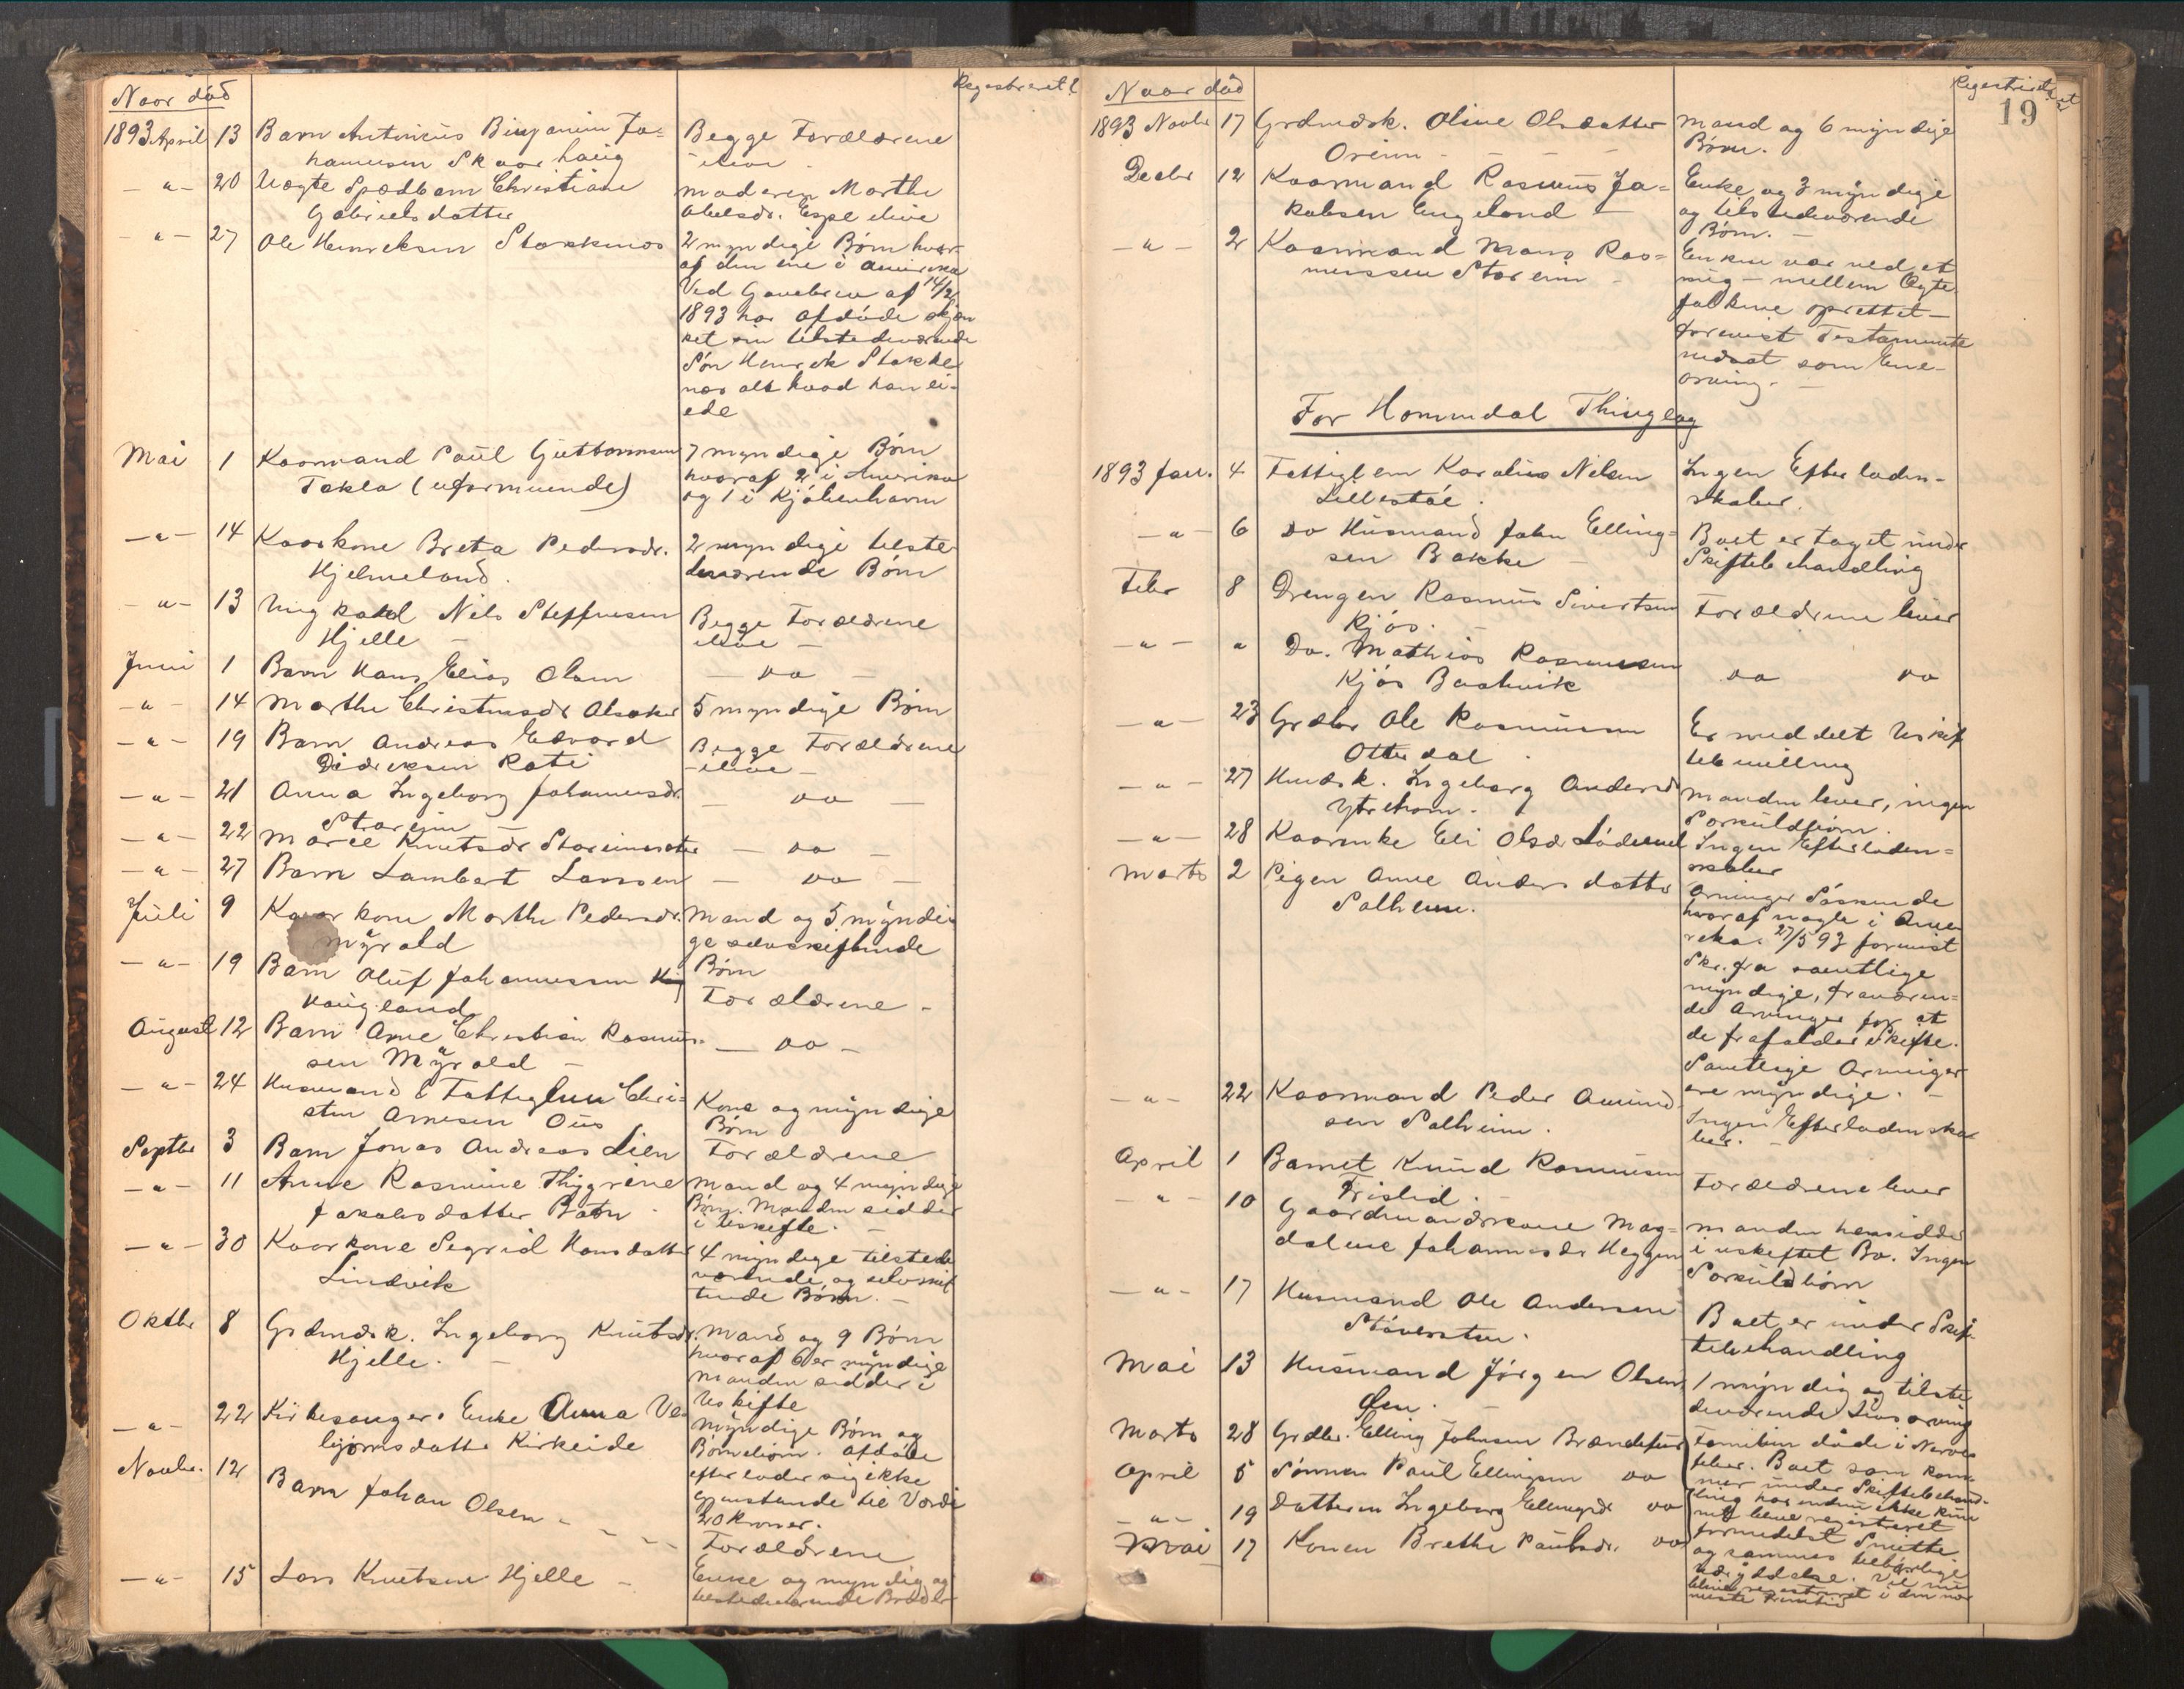 Naar död
Registreret
1893 April 13 Barn Antonius Binjamin Jo=
hannesen Skaarhaug
Begge Forældrene
ilive
— " — 20 Uægte Spædbarn Christiane
Gabrielsdatter
moderen Marthe
Abelsdr. Espe ilive
— " — 27 Ole Henriksen Stokkenes
2 myndige Børn hvor-
af den ene i Amerika
Ved Gavebrev af 14/2
1893 har afdøde skjæn
ket sin tilstedeværende
Søn Henrik Stokke
nes alt hvad han ei-
ede
Mai 1 Kaarmand Paul Guttormsen
Tokla (uformuende)
7 myndige Børn
hvoraf 2 i Amerika
og 1 i Kjøbenhavn
— " — 14 Kaarkone Breta Pedersdr.
Hjelmeland.
2 myndige tilste
deværende Børn
— " — 13 Ungkarl Nils Steffensen
Hjelle —
Begge Forældrene
ilive —
Juni 1 Barn Hans Elias Olsen
— do —
— " — 14 Marthe Christensdr Alsaker
5 myndige Børn
— " — 19 Barn Andreas Edvard
Didriksen Roti
Begge Forældrene
— ilive —
— " — 21 Anna Ingeborg Johannesdr.
Storeim —
— do —
— " — 22 Marie Knutsdr
— do —
— " — 27 Barn Lambert Larsen
— do —
Juli 9 Kaarkone Marthe Pedersdr.
Myrold
Mand og 5 myndi
ge selvskiftende
Børn
— " — 19 Barn Oluf Johannessen
Haugland
Forældrene —
August 12 Barn Arne Christian Rasmus-
sen Myrold —
— do —
— " — 24 Husmand & Fattiglem Chri=
sten Arnesen Øus
Kone og myndige
Børn
Septbr 3 Barn Jonas Andreas Lien
Forældrene
— " — 11 Anne Rasmine Thygrine
Jakobsdatter Bøen
Mand og 4 myndige
Børn. Manden sidder
i Uskifte. —
— " — 30 Kaarkone Segrid Hansdatter
Lindvik
4 myndige tilstede
værende, og selvskif
tende Børn. —
Oktbr 8 Grdmdsk. Ingeborg Knutsdr.
Hjelle. —
Mand og 9 Børn
hvoraf 6 er myndige
Manden sidder i
Uskifte
— " — 22 Kirkesanger Enke Anna Ve
bjørnsdatter Kirkeide
Myndige Børn og
Børnebørn. Afdøde
efterlader sig ikke
Gjenstande til Værdi
20 Kroner.
Novbr. 12 Barn Johan Olsen - - - -
Forældrene
— " — 15 Lars Knutsen Hjelle —
Enke og myndig og
tilstedeværende Brødre
Naar död
Registreret
19
1893 Novbr 17 Grdmdsk. Oline Olsdatter
Oreim - - - -
Mand og 6 myndige
Børn.
Decbr 12 Kaarmand Rasmus Ja=
kobsen Engeland —
Enke og 3 myndige
og tilstedeværende
Børn. —
— " — 2 Kaarmand Mons Ras=
mussen Storeim -
Enken var ved et
mig — mellem Ægte
folkene oprettet —
forevist Testamente
indsat som Ene-
arving. —
For Hornindal Thinglag
1893 Jan. 4 Fattiglem Karolius Nilsen
Lillestøl.
Ingen Efterladen-
skaber.
— " — 6 Do Husmand John Elling=
sen Bakke —
Boet er taget under
Skiftebehandling
Febr 8 Drengen Rasmus Sivertsen
Kjøs. —
Forældrene lever
— " — " Do. Mathias Rasmussen
Kjøs
do do
— " — 23 Grdbr Ole Rasmussen
Otterdal .
Er meddelt Uskif
tebevilling
— " — 27 Hmdsk. Ingeborg Andersdr
Ytrehorn.
Manden lever, ingen
Særkuldbørn.
— " — 28 Kaarenke Eli Olsdr Lødemel
Ingen Efterladen=
skaber
Marts 2 Pigen Anne Andersdatter
Solheim.
Arvinger Søskende
hvoraf nogle i Ame
rika. 27/5 93 forevist
Skr. fra samtlige
myndige, fraværen=
de Arvinger for at
de frafalder Skifte.
Samtlige Arvinger
ere myndige. —
— " — 22 Kaarmand Peder Amund
sen Solheim.
Ingen Efterladenska
ber. —
April 1 Barnet Knud Rasmussen
Frislid. —
Forældrene lever
— " — 10 Gaardmandskone Mag=
dalene Johannesdr Heggen
Manden hensidder
i uskiftet Bo. Ingen
Særkuldbørn
— " — 17 Husmand Ole Andersen
Støversten.
Boet er under Skif-
tebehandling
Mai 13 Husmand Jørgen Olsen
Øen.
1 myndig og tilste
deværende Livsarving
Marts 28 Grdbr. Elling Johnsen Brændefur
April 5 Sønnen Paul Ellingsen do
— " — 19 Datteren Ingeborg Ellingsdr do
Mai 17 Konen Brethe Paulsdr. do
Familien døde i Nerve
feber. Boet som kom
mer under Skiftebehand-
ling har endnu ikke kun
net blive registreret
formedelst Smitte
og sammes tilbørlige
blive registreret i den nær
meste Fremtid